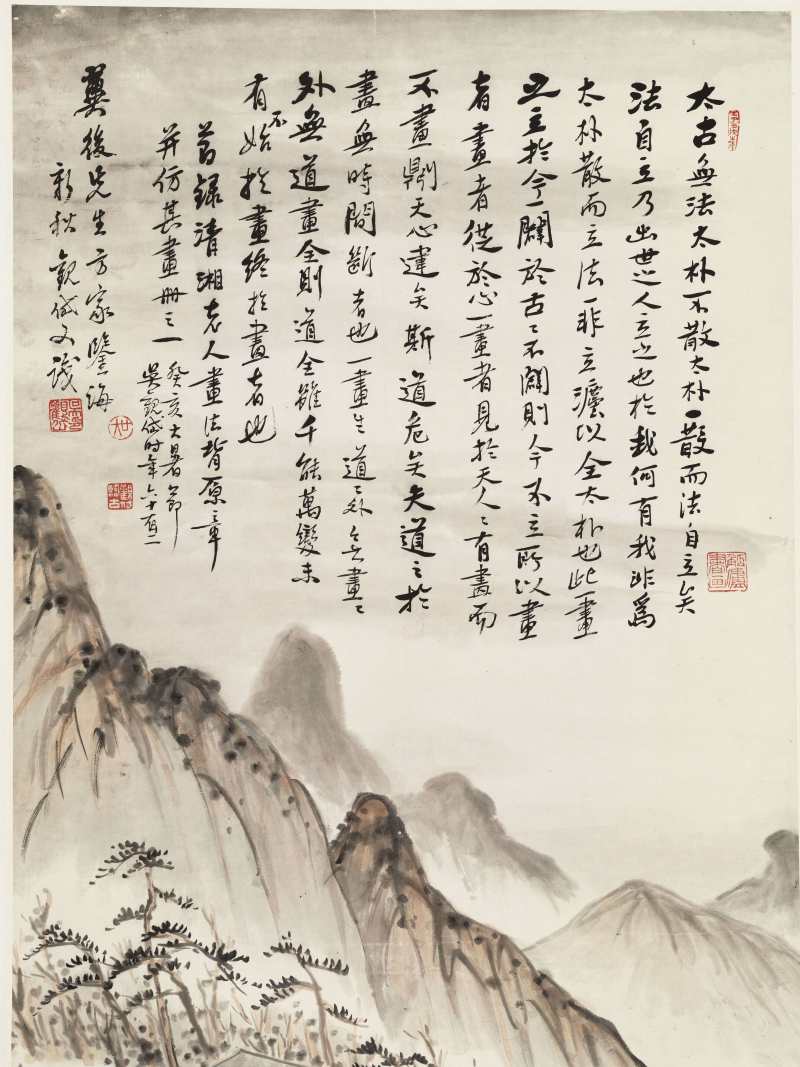 太古無法太朴不散太朴一散而法自立矣
法自立乃出世之人立之也於我何有我非為
太朴散而立法非立法以全太朴也此一畫
立於今闢於古古不闢則今不立所以畫
者畫者從於心一畫者見於天人天人有畫而
不畫天心違矣斯道危矣夫道之於
畫無時間斷者也一畫生道道外無畫畫
外無道畫全則道全雖千能萬變未
有不始於畫終於畫者也
節錄清湘老人畫法背原章
并仿其畫冊之一
癸亥大暑節
吳觀岱時年六十有二
冀後先生方家鑒海
新秋觀岱又識